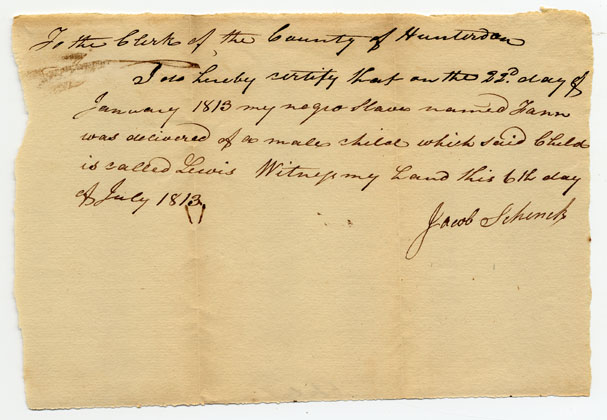 To the Clerk of the County of Hunterdon
I do hereby certify that on the 22d. day of
January 1813 my negro slave named Fann
was delivered of a male child which said Child
is called Lewis Witness my hand this 6th day
of July 1813.
Jacob Schenck